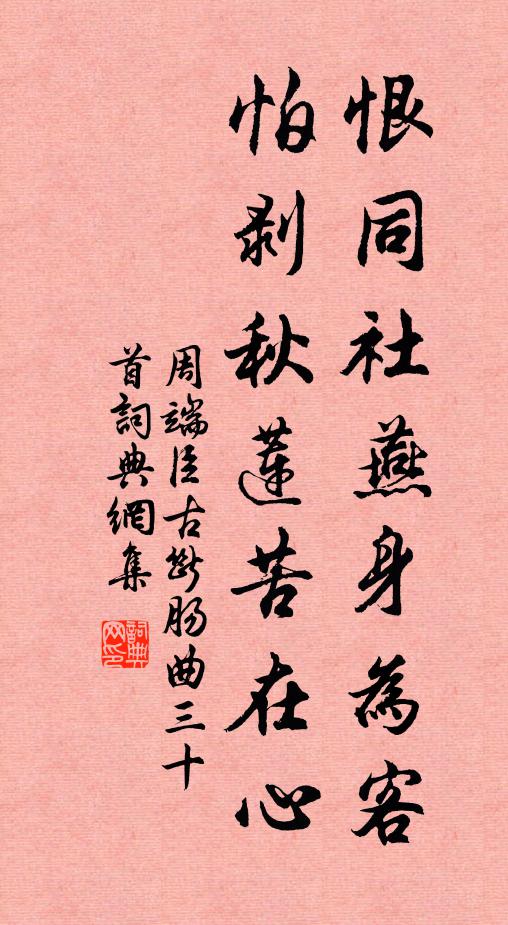 恨同社燕身為客
怕剥秋蓮苦在心
周端臣古斷腸曲三十
首詞典網集
詞典网印